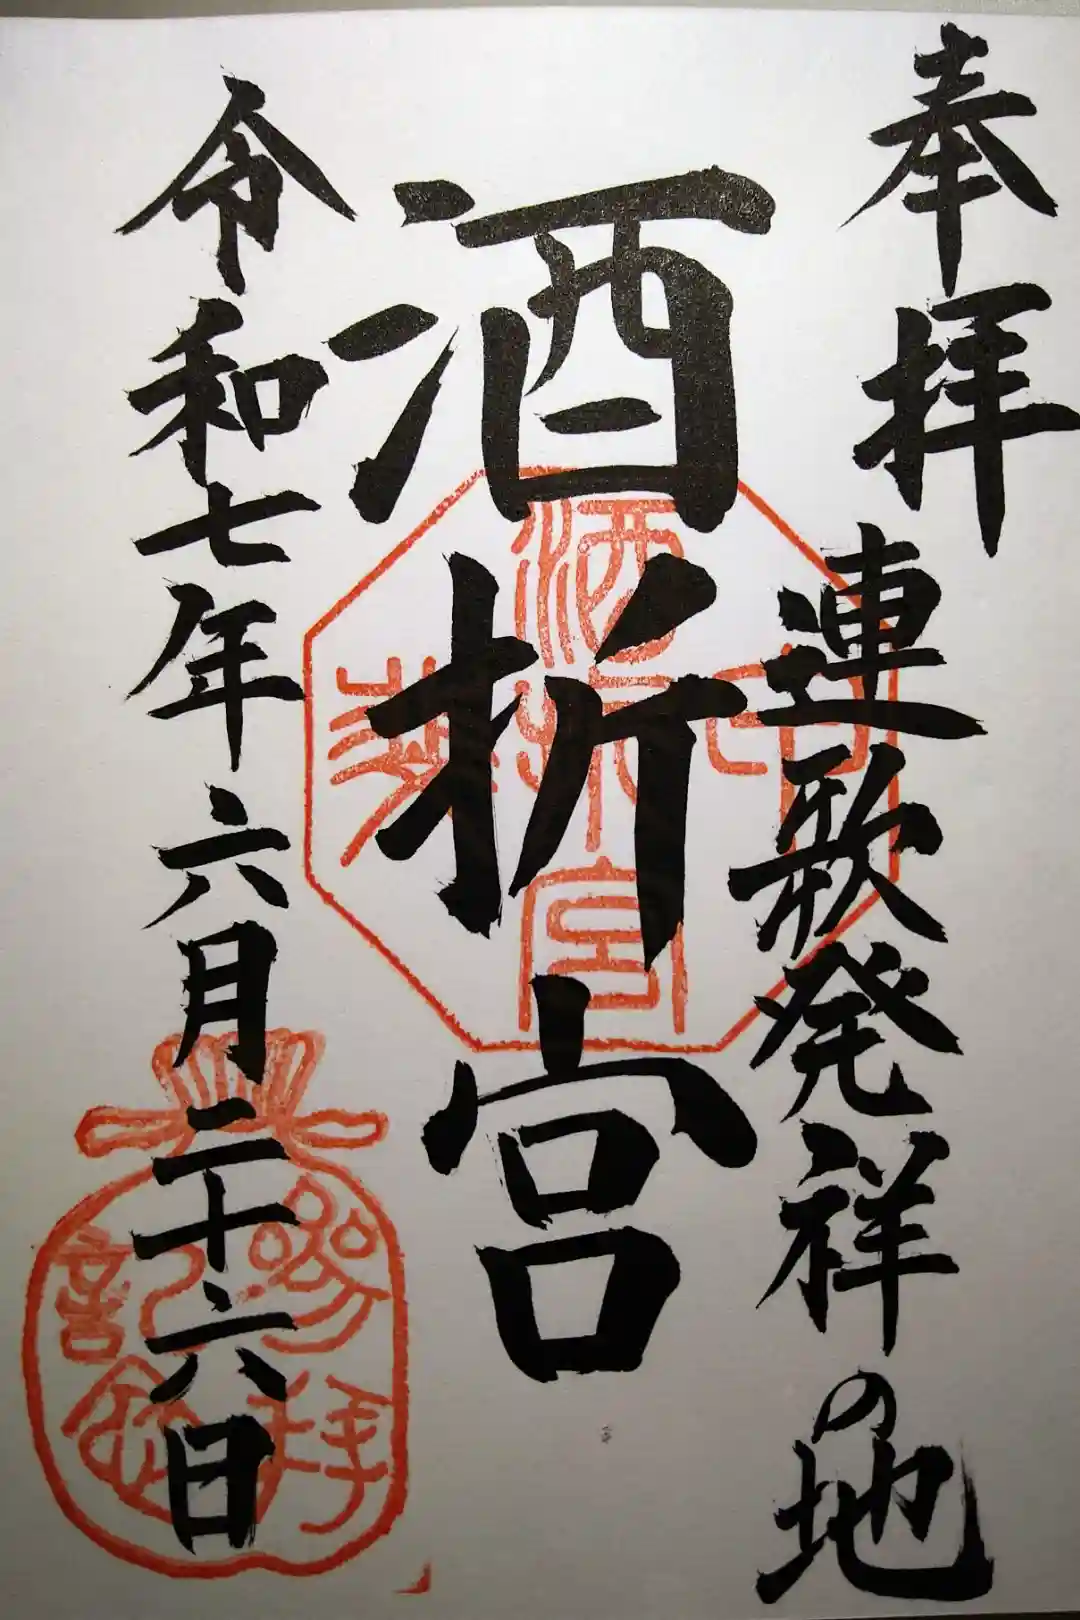 奉拝
連歌発祥の地
酒折宮
令和七年六月二十六日
酒折宮
參拜
記念